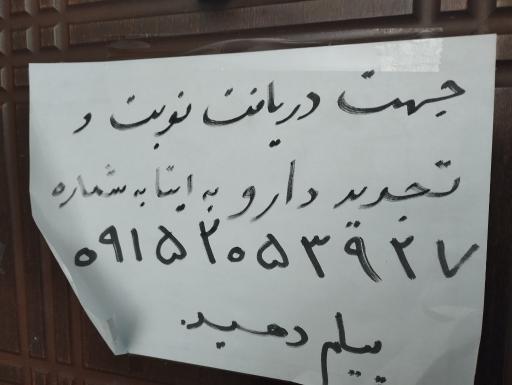 جهت دریافت نوبت و
تجدید دارو به ایتا به شماره
۰۹۱۵۲۰۵۳۹۲۷
پیام دهید.